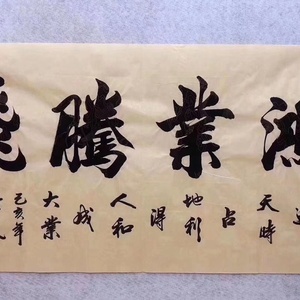 鴻業騰飛
天時占地利得人和成大業
己亥年